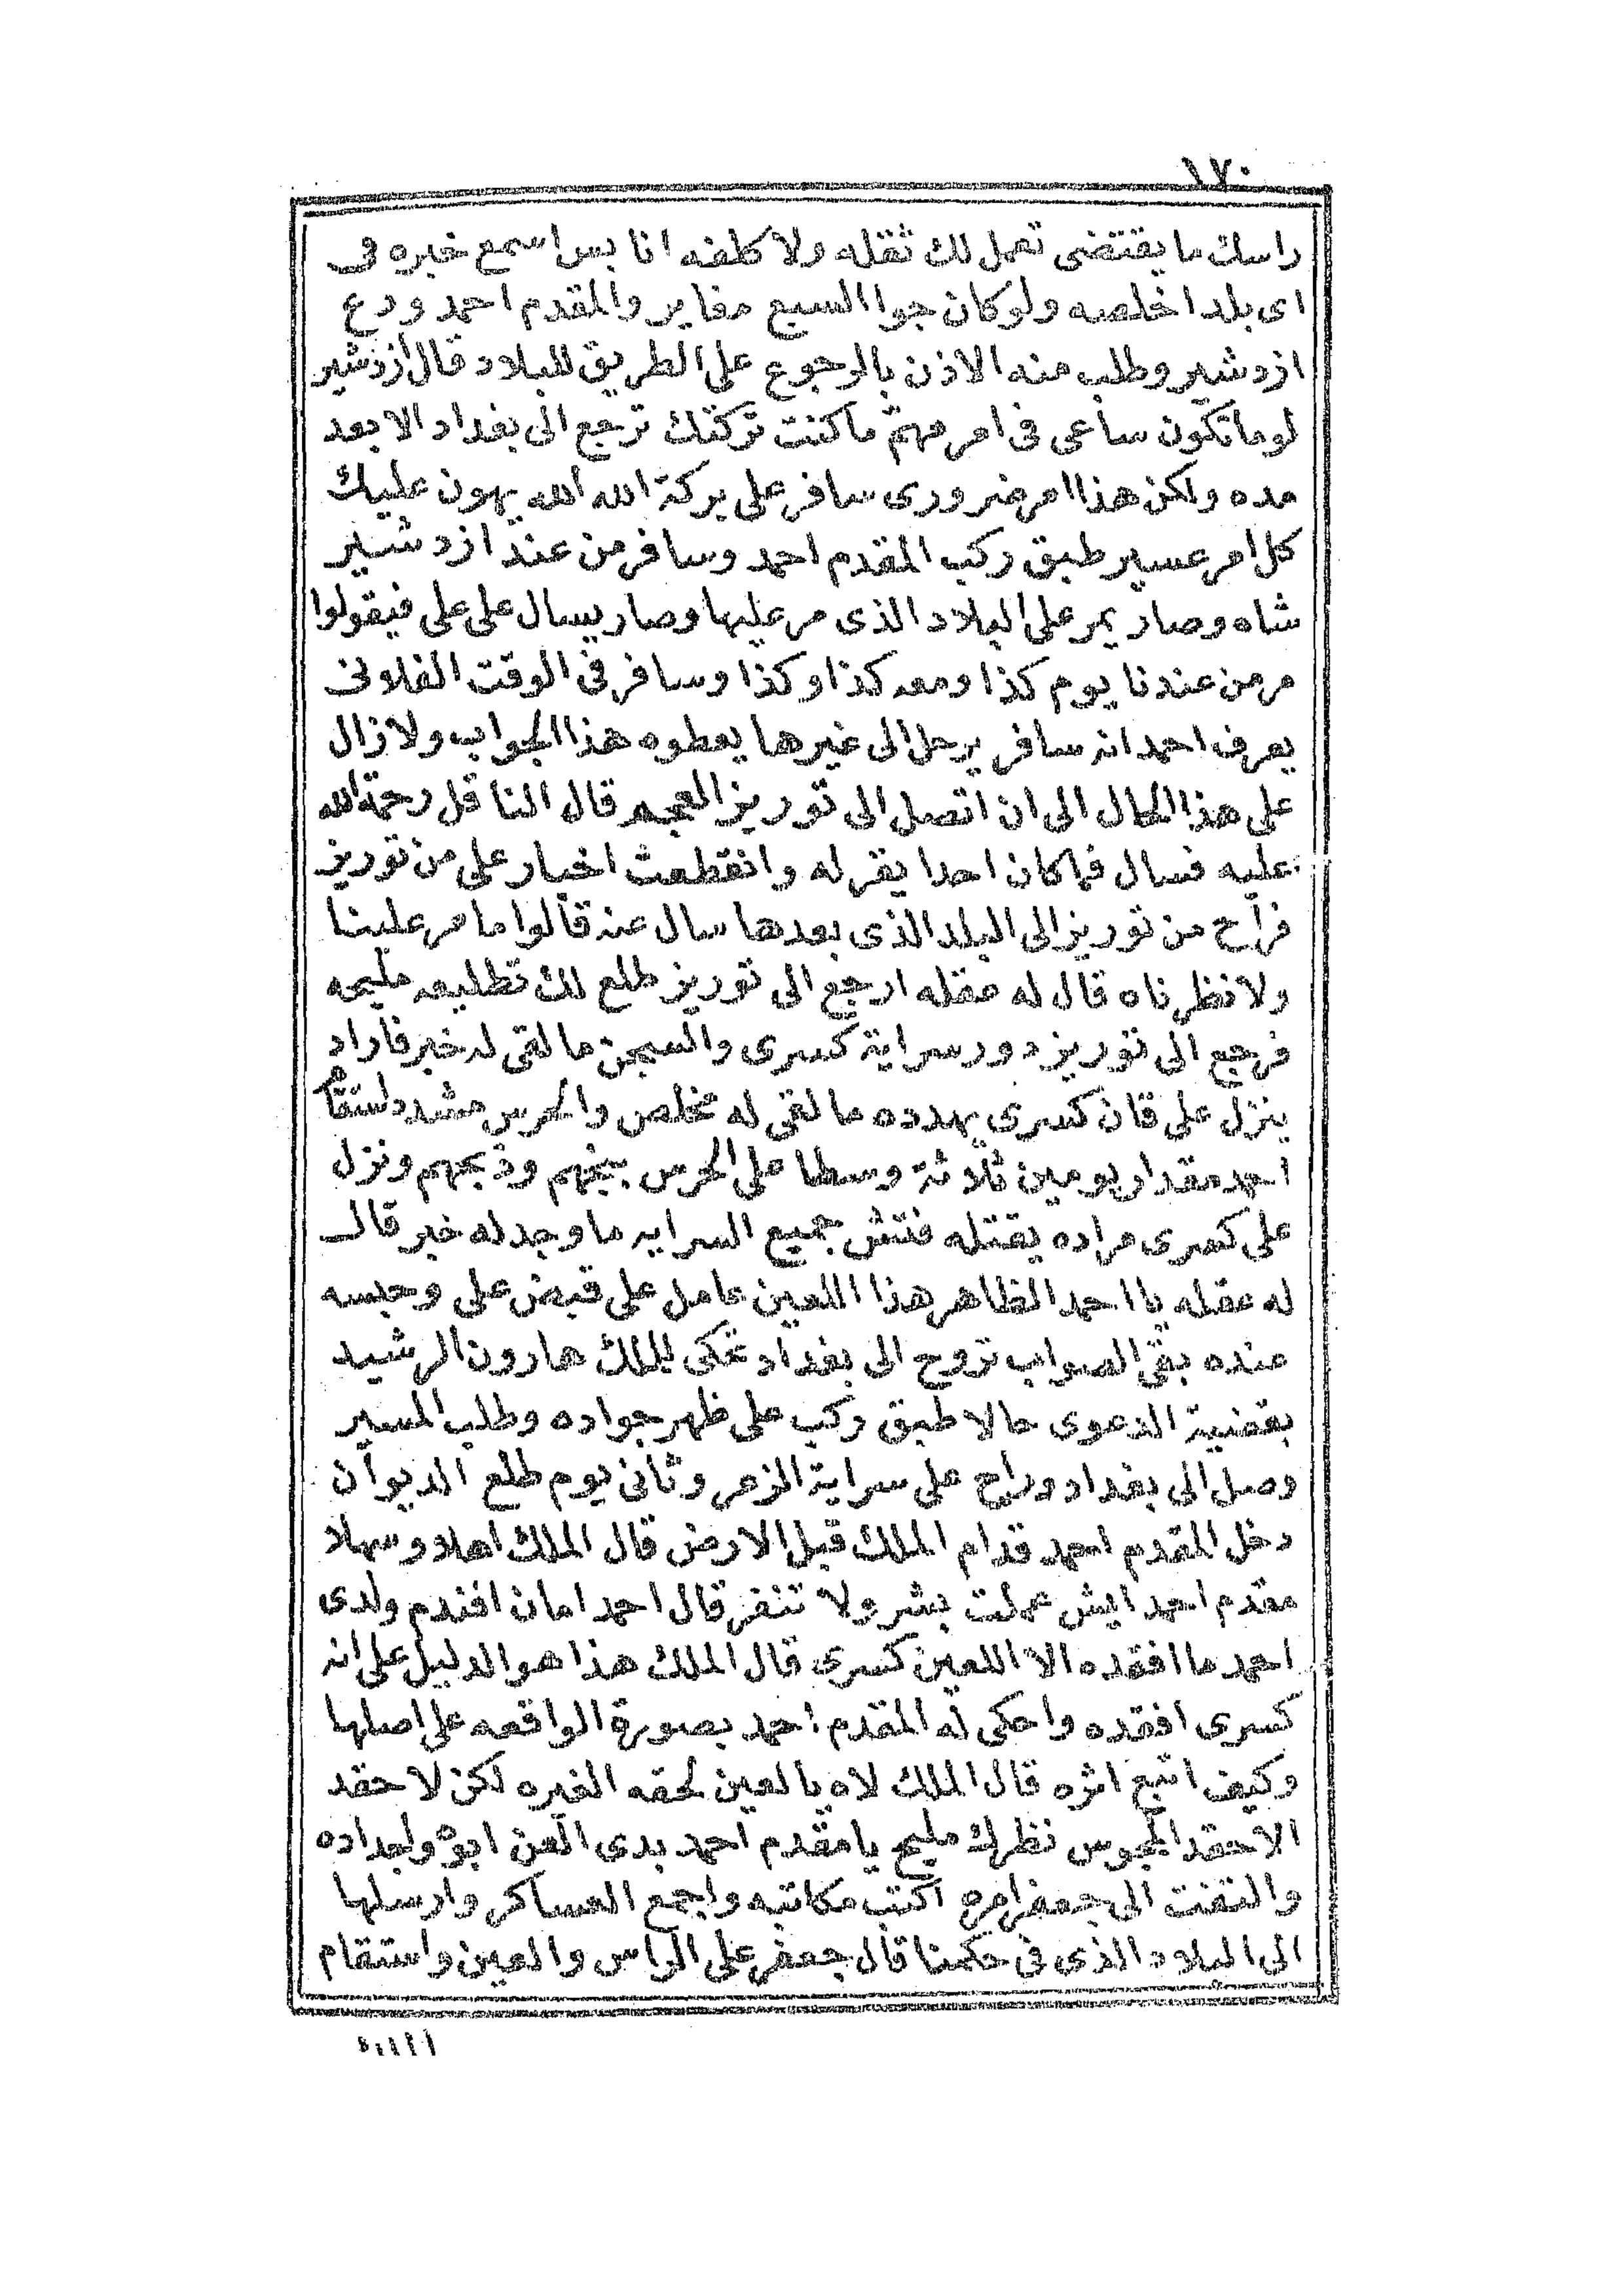 ١٧٠
راسك ما يقتضى تعمل لك ثقله ولا كلفه انا بس اسمع خبره فى
اى بلد اخلصه ولو كان جوا السبع مغاير والمقدم احمد ودع
ازدشير وطلب منه الاذن بالرجوع على الطريق للبلاد قال ازدشير
لو ما تكون ساعى فى امر مهم ما كنت تركتك ترجع الى بغداد الا بعد
مده ولكن هذا امر ضرورى سافر على بركة الله الله يهون عليك
كل امر عسير طبق ركب المقدم احمد وسافر من عند ازدشير
شاه وصار يمر على البلاد الذى مر عليها وصار يسال على على فيقولوا
مر من عندنا يوم كذا ومعه كذا وكذا وسافر فى الوقت الفلانى
يعرف احمد انه سافر يرحل الى غيرها يعطوه هذا الجواب ولا زال
على هذا الحال الى ان اتصل الى توريز العجم قال الناقل رحمة الله
عليه فسال فما كان احدا يقر له وانقطعت اخبار على من توريز
فراح من توريز الى البلد الذى بعدها سال عنه قالوا ما مر علينا
ولا نظرناه قال له عقله ارجع الى توريز طلع لك تطليعه مليحه
فرجع الى توريز دور سراية كسرى والسجن ما لقى له خبر فاراد
ينزل على قان كسرى يهدده ما لقى له مخلص والحرس مشدد استقام
احمد مقدار يومين ثلاثة وسطا على الحرس بنجهم وذبحهم ونزل
على كسرى مراده يقتله فتش جميع السرايه ما وجد له خبر قال
له عقله يا احمد الظاهر هذا اللعين عامل على قبض على وحبسه
عنده بقى الصواب تروح الى بغداد تحكى للملك هارون الرشيد
بقضية الدعوى حالا طبق ركب على ظهر جواده وطلب المسير
وصل الى بغداد وراح على سراية الزعر وثانى يوم طلع الديوان
دخل المقدم احمد قدام الملك قبل الارض قال الملك اهلا وسهلا
مقدم احمد ايش عملت بشر ولا تنفر قال احمد امان افندم ولدى
احمد ما افقده الا اللعين كسرى قال الملك هذا هو الدليل على انه
كسرى افقده واحكى له المقدم احمد بصورة الواقعه على اصلها
وكيف اتبع اثره قال الملك لاه يا لعين لحقه الغيره لكن لا حقد
الا حقد المجوس نظرك مليح يا مقدم احمد بدى العن ابوه واجداده
والتفت الى جعفر امره اكتب مكاتبه واجمع العساكر وارسلها
الى البلاد الذى فى حكمنا قال جعفر على الراس والعين واستقام